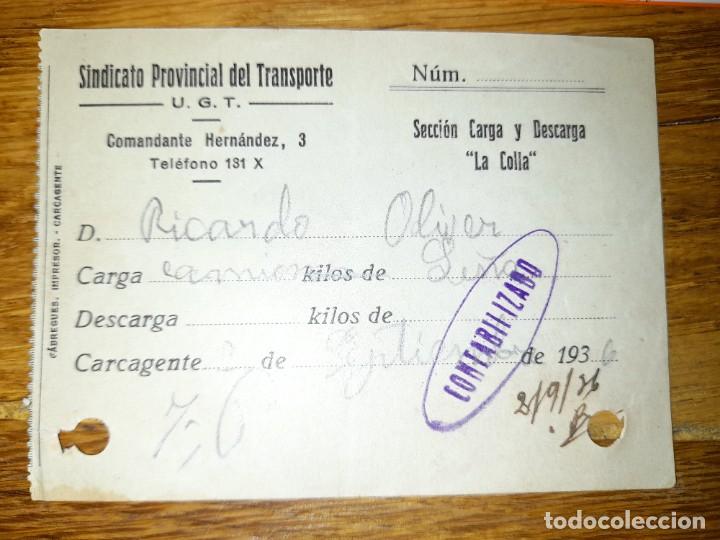 Sindicato Provincial del Transporte
U. G. T.
Comandante Hernández, 3
Teléfono 131 X
Núm.
Sección Carga y Descarga
"La Colla"
D. Ricardo Oliver
Carga camion kilos de Leña
Descarga kilos de
Carcagente 2 de Septiembre de 1936
CONTABILIZADO
FÁBREGUES, IMPRESOR. - CARCAGENTE
todocoleccion